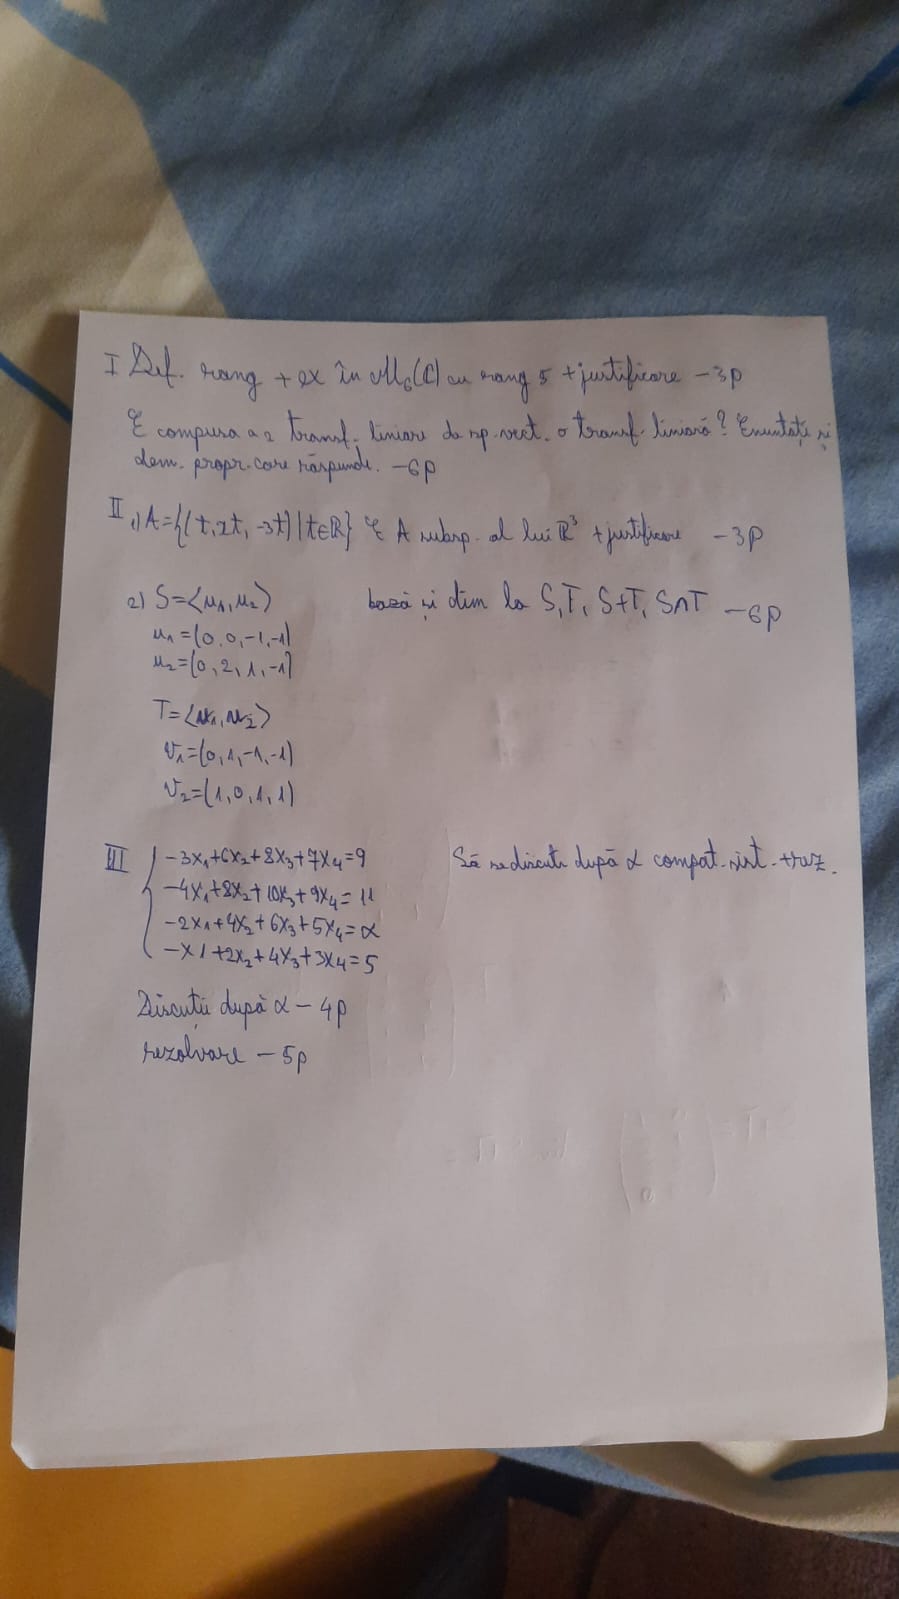 I Def. rang + ex în M6(C) cu rang 5 + justificare - 3p
E compusa a 2 transf. liniare de sp. vect. o transf. liniară? Enunțați și
dem. propr. care răspunde. - 6p
II 1) A={(t,2t,-3t)|t∈R} E A subsp. al lui R³ + justificare - 3p
2) S=<u1,u2> bază și dim la S,T, S+T, S∩T - 6p
u1=(0,0,-1,-1)
u2=(0,2,1,-1)
T=<v1,v2>
v1=(0,1,-1,-1)
v2=(1,0,1,1)
III { -3x1+6x2+8x3+7x4=9 Să se discute după α compat. sist. + rez.
-4x1+8x2+10x3+9x4=11
-2x1+4x2+6x3+5x4=α
-x1+2x2+4x3+3x4=5
Discuții după α - 4p
rezolvare - 5p